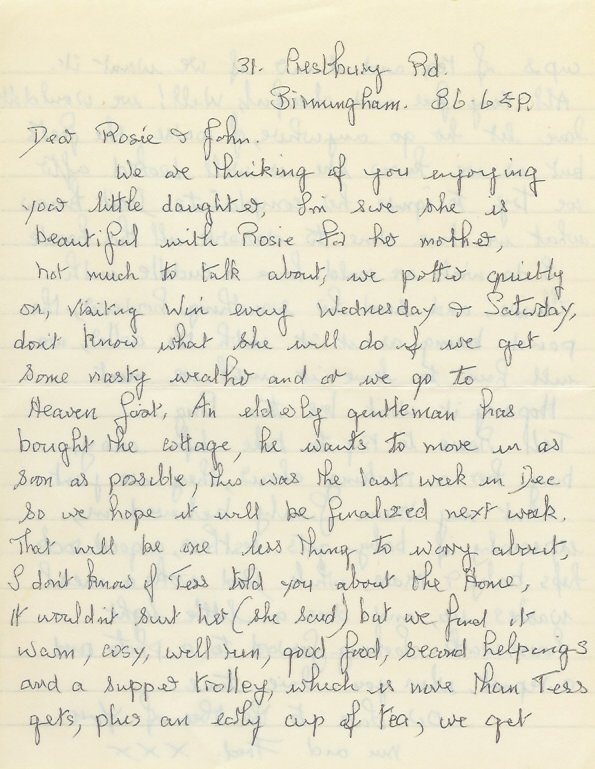 31. Prestbury Rd.
Birmingham. B6. 6 EP.
Dear Rosie & John.
We are thinking of you enjoying
your little daughter, I'm sure she is
beautiful with Rosie for her mother,
not much to talk about, we potter quietly
on, visiting Win every Wednesday & Saturday,
don't know what she will do if we get
some nasty weather and or we go to
Heaven first, An elderly gentleman has
bought the cottage, he wants to move in as
soon as possible, this was the last week in Dec
so we hope it will be finalized next week.
That will be one less thing to worry about,
I don't know if Tess told you about the Home,
it wouldn't suit her (she said, but we find it
warm, cosy, well run, good food, second helpings
and a supper trolley, which is more than Tess
gets, plus an early cup of tea, we get